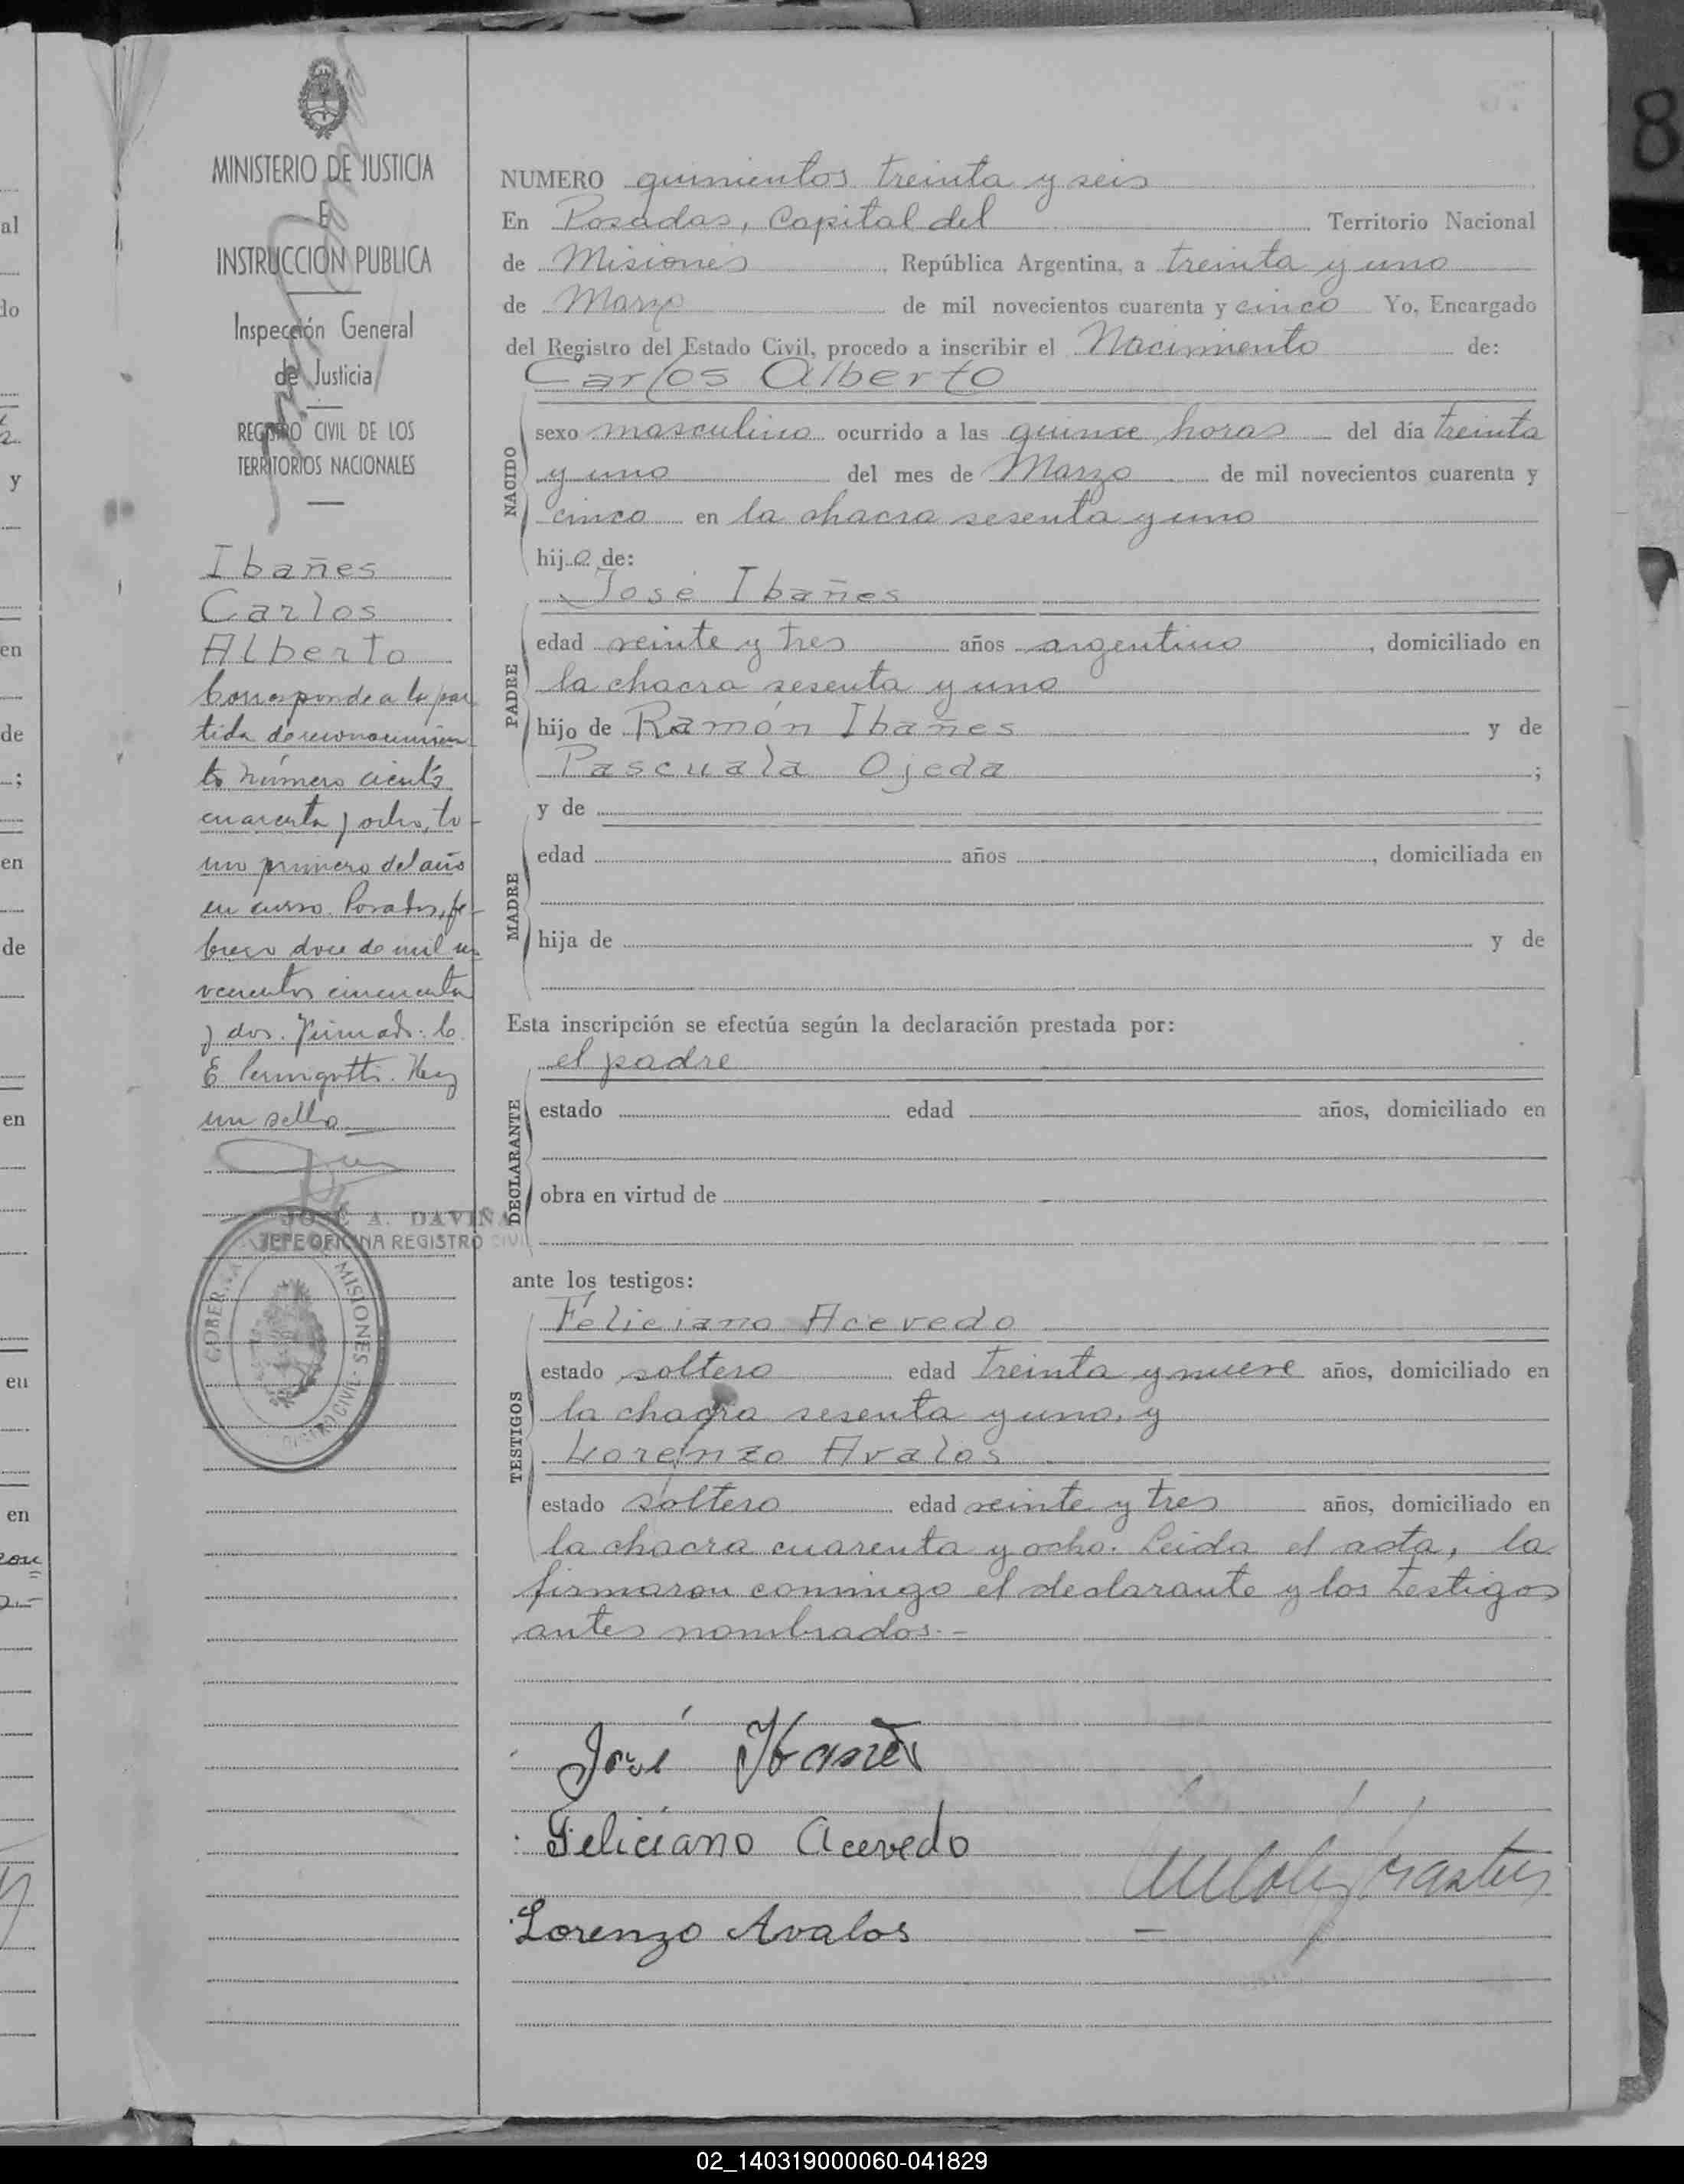 MINISTERIO DE JUSTICIA
E
INSTRUCCION PUBLICA
Inspección General
de Justicia
REGISTRO CIVIL DE LOS
TERRITORIOS NACIONALES
Ibañes
Carlos
Alberto
Corresponde a la par
tida de reconocimien
to número ciento
cuarenta y ocho, to-
mo primero del año
en curso. Posadas, fe-
brero doce de mil no
vecientos cincuenta
y dos. Firmado: C.
E. Hay
un sello
JOSÉ A. DAVIÑA
JEFE OFICINA REGISTRO CIVIL
MISIONES
NUMERO quinientos treinta y seis
En Posadas, Capital del Territorio Nacional
de Misiones, República Argentina, a treinta y uno
de Marzo de mil novecientos cuarenta y cinco Yo, Encargado
del Registro del Estado Civil, procedo a inscribir el Nacimiento de:
Carlos Alberto
NACIDO
sexo masculino ocurrido a las quince horas del día treinta
y uno del mes de Marzo de mil novecientos cuarenta y
cinco en la chacra sesenta y uno
hijo de:
José Ibañes
PADRE
edad veinte y tres años argentino, domiciliado en
la chacra sesenta y uno
hijo de Ramón Ibañes y de
Pascuala Ojeda;
y de
MADRE
edad años, domiciliada en
hija de y de
Esta inscripción se efectúa según la declaración prestada por:
el padre
DECLARANTE
estado edad años, domiciliado en
obra en virtud de
ante los testigos:
Feliciano Acevedo
TESTIGOS
estado soltero edad treinta y nueve años, domiciliado en
la chacra sesenta y uno, y
Lorenzo Avalos
estado soltero edad veinte y tres años, domiciliado en
la chacra cuarenta y ocho. Leida el acta, la
firmaron conmigo el declarante y los testigos
antes nombrados.-
José Ibañes
Feliciano Acevedo
Lorenzo Avalos
8
02_140319000060-041829